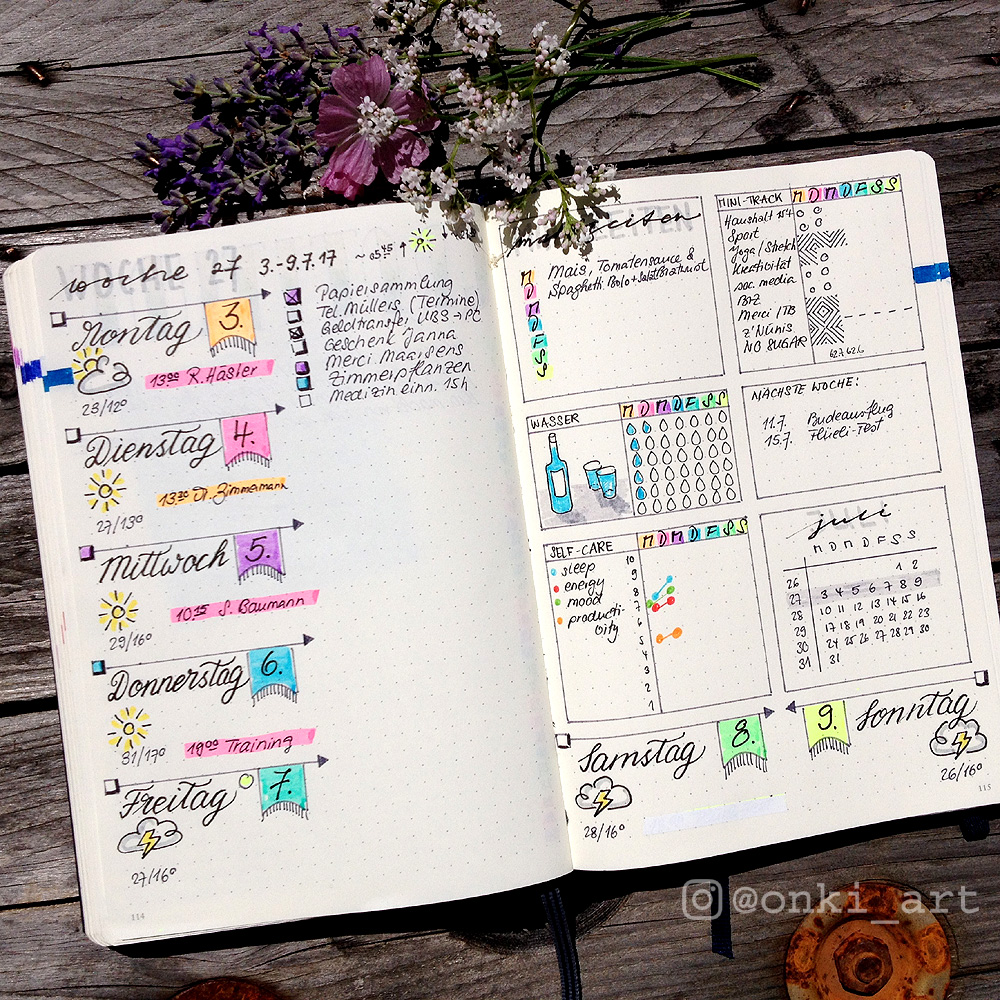 WOCHE 27
woche 27 3.-9.7.17 ~ 05:45
Montag 3.
13:00 R. Häsler
23/12°
Papiersammlung
Tel. Müllers (Termine)
Geldtransfer UBS → PC
Geschenk Janna
Merci Maarsens
Zimmerpflanzen
Medizin einn. 15h.
Dienstag 4.
13:30 Dr. Zimmermann
27/13°
Mittwoch 5.
10:15 S. Baumann
29/16°
Donnerstag 6.
19:00 Training
31/17°
Freitag 7.
27/16°
114
M
D
M
D
F
S
S
Mais, Tomatensauce &
Spaghetti Bolo + Salat Bratwurst
MINI-TRACK M D M D F S S
Haushalt 15'
Sport
Yoga / Stretch
Kreativität
soc. media
BIZ
Merci / TB
Z'Nünis
NO SUGAR
WASSER M D M D F S S
NÄCHSTE WOCHE:
11.7. Budeausflug
15.7. Flüeli-Fest
SELF-CARE M D M D F S S
sleep
energy
mood
producti-
vity
10
9
8
7
6
5
4
3
2
1
juli
M D M D F S S
26 1 2
27 3 4 5 6 7 8 9
28 10 11 12 13 14 15 16
29 17 18 19 20 21 22 23
30 24 25 26 27 28 29 30
31 31
Samstag 8.
28/16°
9. Sonntag
26/16°
115
@onki_art